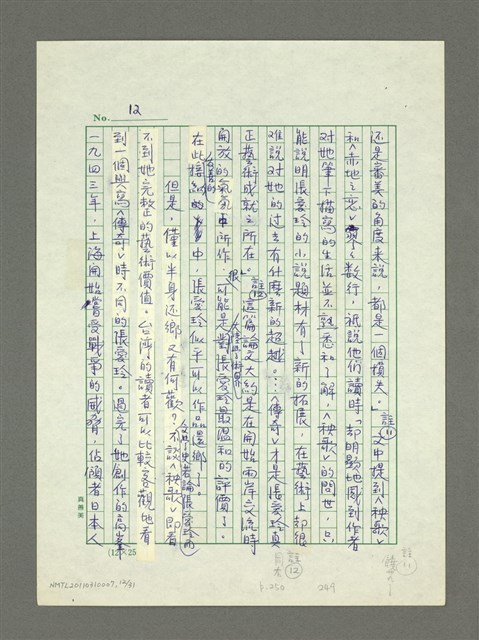 No. 12
還是審美的角度来説，都是一個損失。」註⑪文中提到〈秧歌〉
和〈赤地之恋〉數行，祇説他們讀時「却明顯地感到作者
對她筆下描寫的生活並不熟悉和了解，〈秧歌〉的问世，只
能説明張爱玲的小説題材有了新的拓展，在藝術上却很
难説对她的过去有什麽新的超越。…〈傳奇〉才是張爱玲真
正藝術成就之所在。」註⑫這篇論文大約是在開始兩岸交流時
開放的氣氛中所作，很可能是大陸學術界對張爱玲最温和的評價了。
在此接納的中，張爱玲似乎可以作品還鄉了。
但是，僅以半身还鄉又有何歡？不談〈秧歌〉即看
不到她完整的藝術價值。台灣的讀者可以比較客觀地看
到一個與寫〈傳奇〉時不同的張爱玲。過完了她創作的高峯
一九四三年，上海開始嘗受戰爭的威脅，佔領者日本人
真善美
(12×25
註⑪
註⑫
p.250
249
NMTL20110310007, 12/41